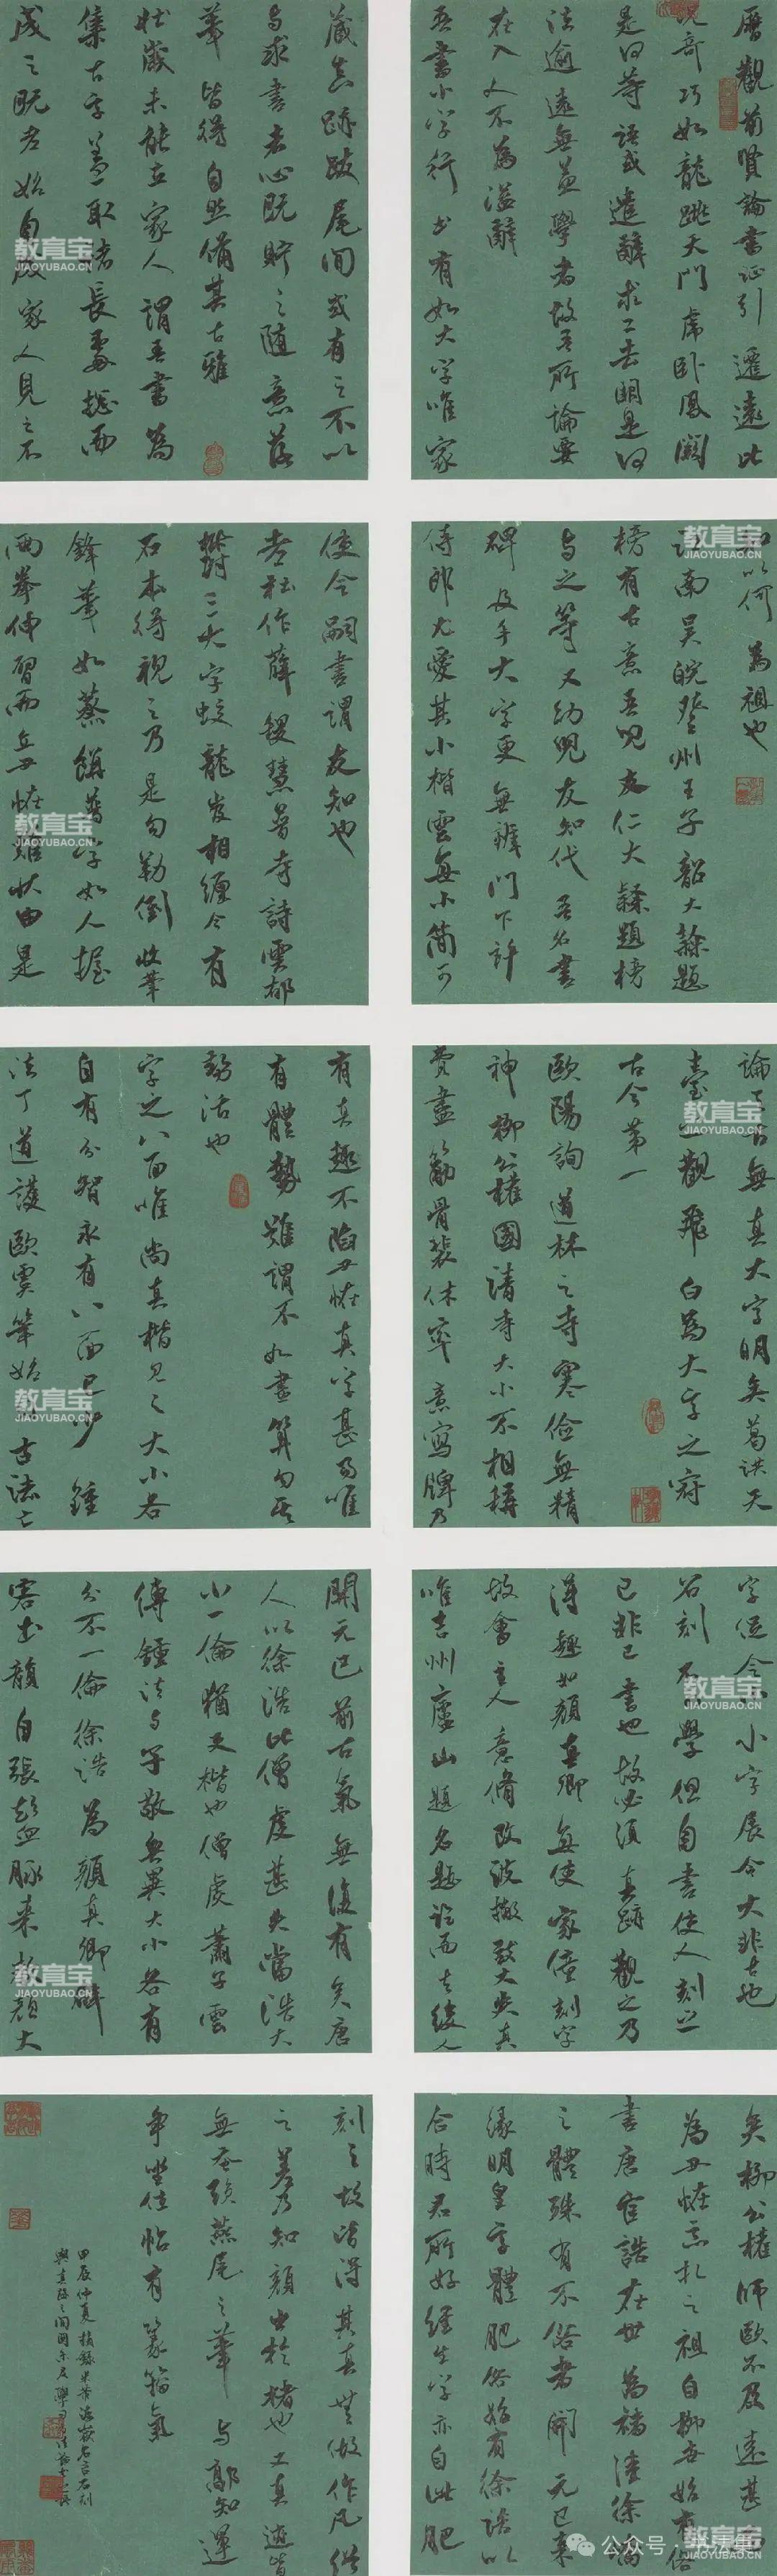 曆觀前賢論書證引遷遠比
況奇巧如龍跳天門虎臥鳳闕
是何等語或遣辭求工去是何
法逾遠無益學者故吾所論要
在入人不為溢辭
吾書小字行書有如大字唯家
藏真跡跋尾間或有之不以
與求書者心既貯之隨意落
筆皆得自然備其古雅
壯歲未能立家人謂吾書為
集古字蓋取諸長處總而
成之既老始自成家人見之不
知以何為祖也
江南吳皖登州王子韶大隸題
榜有古意吾兒友仁大隸題榜
與之等又幼兒友知代吾名書
碑及手大字更無辨門下許
侍郎尤愛其小楷雲每小簡可
使令嗣書謂友知也
老杜作薛稷慧普寺詩雲都
鬱三大字蛟龍岌相纏今有
石本得視之乃是勾勒倒收筆
鋒筆如蒸餅普字如人握
兩拳伸臂而立丑怪難狀由是
論之古無真大字明矣葛洪天
臺之觀飛白為大字之冠
古今第一
歐陽詢道林之寺寒儉無精
神柳公權國清寺大小不相稱
費盡筋骨裴休率意寫牌乃
有真趣不陷丑怪真字甚易唯
有體勢難謂不如畫算勻其
勢活也
字之八面唯尚真楷見之大小各
自有分智永有八面已少鍾
法丁道護歐虞筆始勻古法亡
字促令小小字展令大非古也
石刻不可學但自書使人刻之
已非己書也故必須真跡觀之乃
得趣如顏真卿每使家僮刻字
故會主人意修改波撇致大失真
唯吉州廬山題名題訖而去後人
開元已前古氣無復有矣唐
人以徐浩比僧虔甚失當浩大
小一倫猶吏楷也僧虔蕭子雲
傳鍾法與子敬無異大小各有
分不一倫徐浩為顏真卿辟
客書韻自張顛血脈來教顏大
矣柳公權師歐不及遠甚而
為丑怪惡札之祖自柳世始有俗
書唐官誥在世為褚陸徐嶠
之體殊有不俗者開元已來
緣明皇字體肥俗始有徐浩以
合時君所好經生字亦自此肥
刻之故皆得其真無做作凡俗
之差乃知顏出於褚也又真跡皆
無蠶頭燕尾之筆與郭知運
爭坐位帖有篆籀氣
甲辰仲夏錄米芾海嶽名言石刻
與真跡之間
教育宝
JIAOYUBAO.CN
教育宝
JIAOYUBAO.CN
教育宝
JIAOYUBAO.CN
教育宝
JIAOYUBAO.CN
教育宝
JIAOYUBAO.CN
教育宝
JIAOYUBAO.CN
教育宝
JIAOYUBAO.CN
教育宝
JIAOYUBAO.CN
教育宝
JIAOYUBAO.CN
公众号